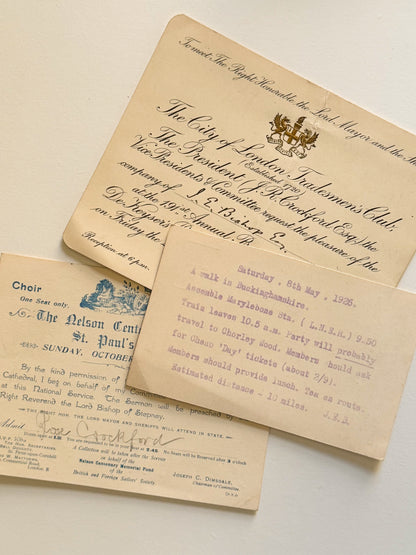 To meet The Right Honorable the Lord Mayor and the
The City of London Tradesmen's Club.
Established 1720
The President (J. R. Crockford Esqre) The
Vice Presidents & Committee request the pleasure of the
company of J. E. Bishop Esq
at the 191st Annual
De Keyser's
on Friday the
Reception at 6 p.m.
Saturday, 8th May, 1926.
A walk in Buckinghamshire.
Assemble Marylebone Stn. ( L.N.E.R.) 9.50
Train leaves 10.5 a.m. Party will probably
travel to Chorley Wood. Members should ask
for Cheap 'Day' tickets (about 2/9).
Members should provide lunch. Tea en route.
Estimated distance - 10 miles. J.E.B.
Choir
One Seat only.
The Nelson Cent
St. Paul's
SUNDAY, OCTOBER
By the kind permission of
Cathedral, I beg on behalf of my
at this National Service. The Sermon will be preached by
Right Reverend the Lord Bishop of Stepney.
THE RIGHT HON. THE LORD MAYOR AND SHERIFFS WILL ATTEND IN STATE.
Admit Crockford
A Collection will be taken after the Service
on behalf of the
Nelson Centenary Memorial Fund
of the
British and Foreign Sailors' Society
JOSEPH C. DIMSDALE,
Chairman of Committee